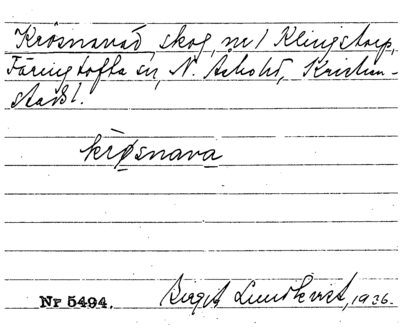 Krösnavad, skog, nr 1 Klingstorp,
Färingtofta sn, N. Åsbohd, Kristian-
stads l.
krøsnava
Nr 5494. Birgit Lundkvist, 1936.